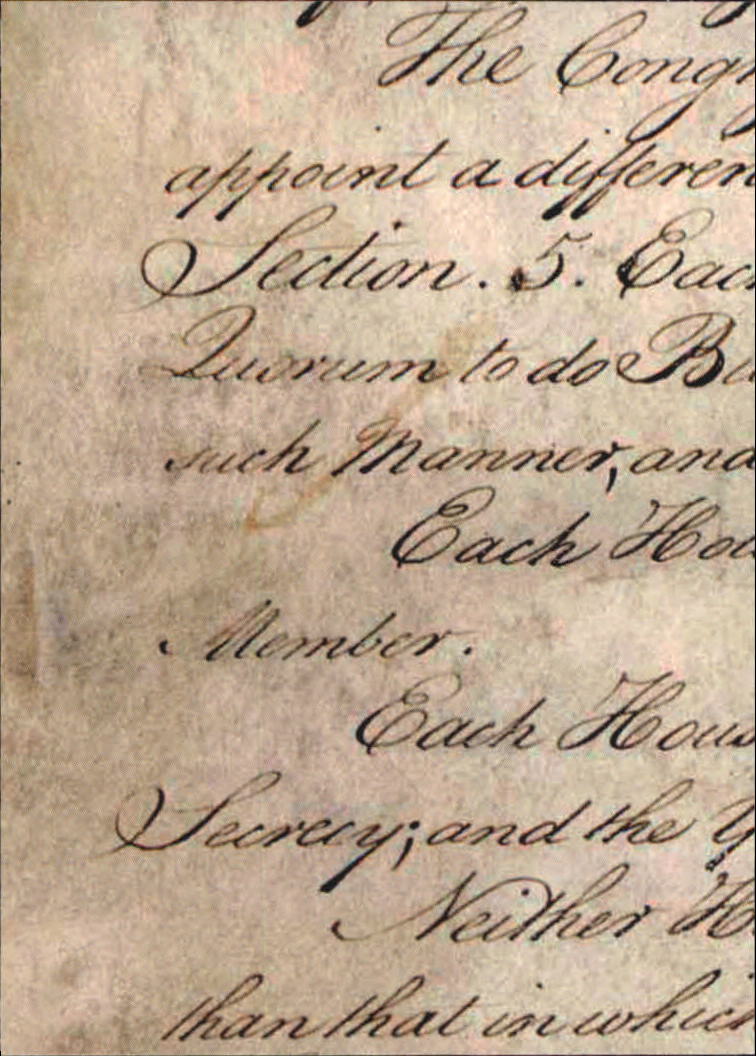 The Congr
appoint a differen
Section. 5. Each
Quorum to do Bu
such Manner, and
Each Hou
Member.
Each Hous
Secrecy; and the Y
Neither H
than that in which